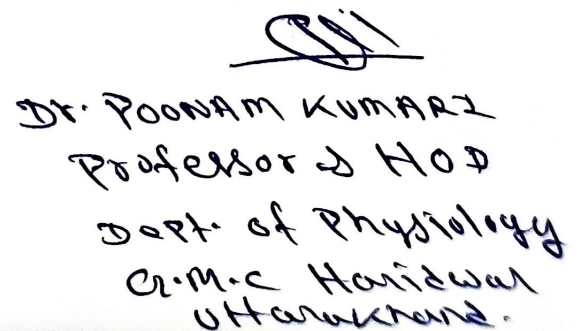 Dr. POONAM KUMARI
Professor & HOD
Dept. of Physiology
G.M.C Haridwar
Uttarakhand.